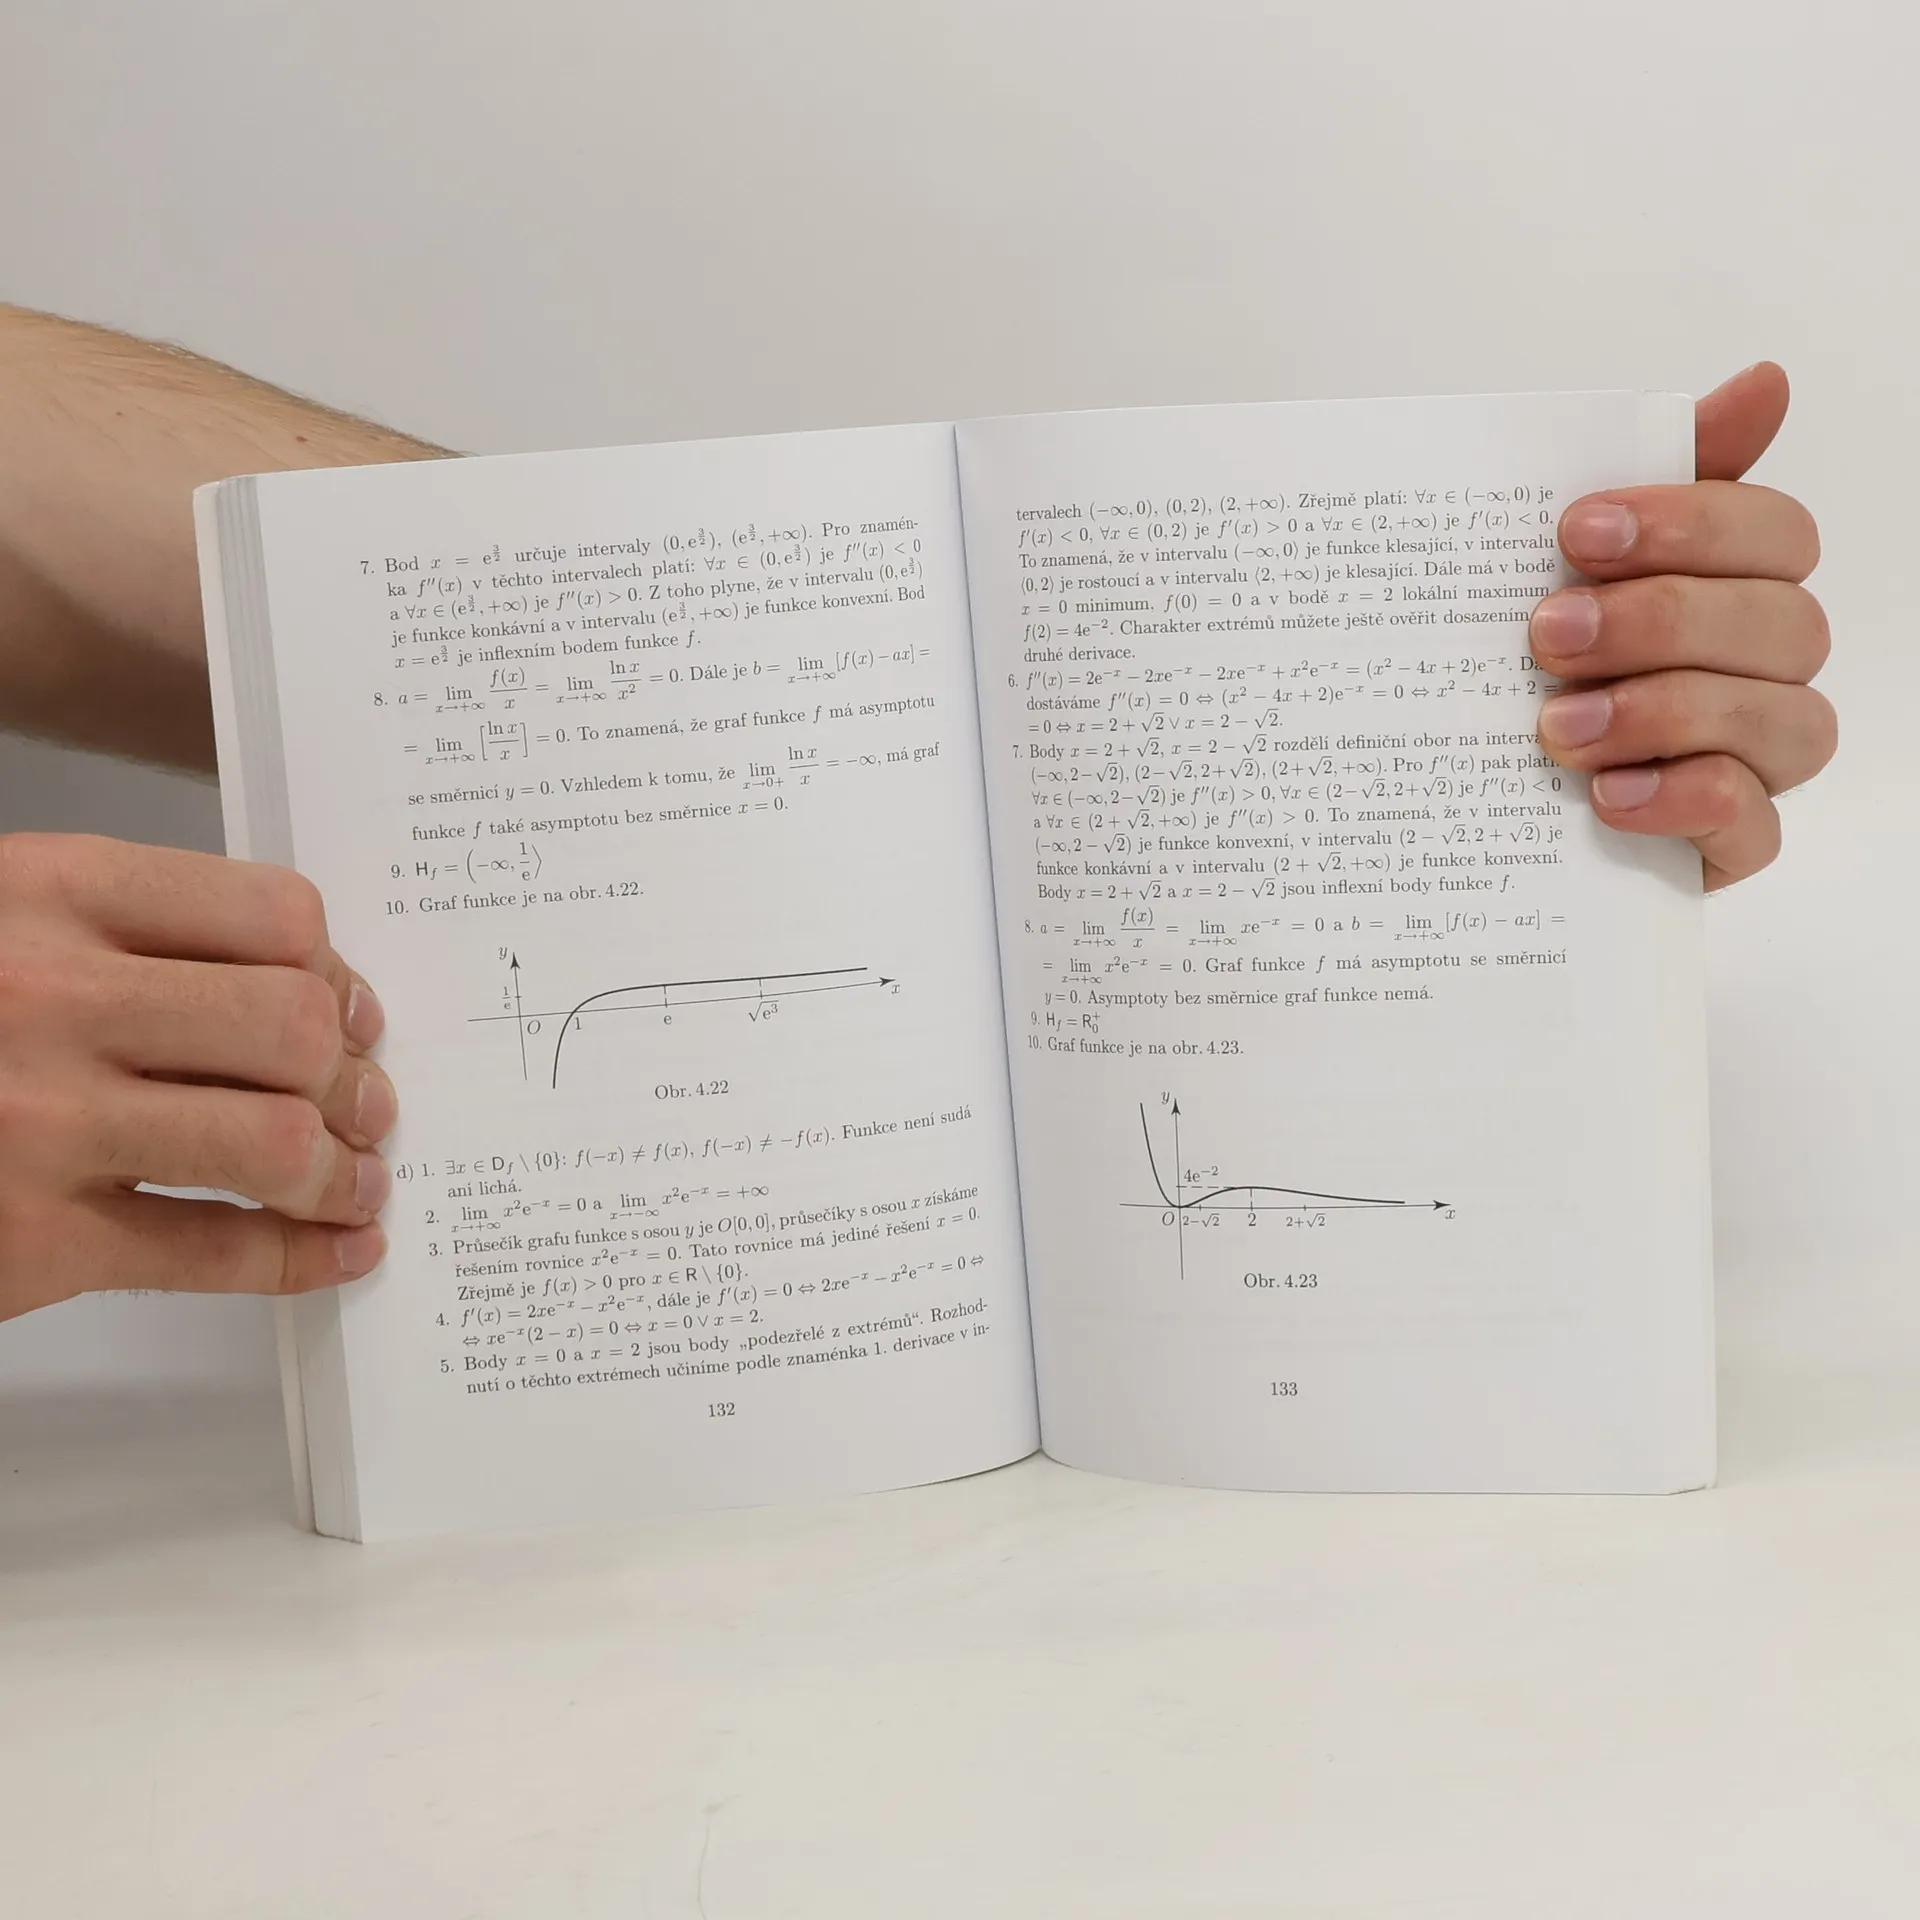 7. Bod x = e^{3/2} určuje intervaly (0, e^{3/2}), (e^{3/2}, +∞). Pro znamén-
ka f″(x) v těchto intervalech platí: ∀x ∈ (0, e^{3/2}) je f″(x) < 0
a ∀x ∈ (e^{3/2}, +∞) je f″(x) > 0. Z toho plyne, že v intervalu (0, e^{3/2})
je funkce konkávní a v intervalu (e^{3/2}, +∞) je funkce konvexní. Bod
x = e^{3/2} je inflexním bodem funkce f.
8. a = lim_{x→+∞} f(x)/x = lim_{x→+∞} ln x/x² = 0. Dále je b = lim_{x→+∞} [f(x) − ax] =
= lim_{x→+∞} [ln x/x] = 0. To znamená, že graf funkce f má asymptotu
se směrnicí y = 0. Vzhledem k tomu, že lim_{x→0+} ln x/x = −∞, má graf
funkce f také asymptotu bez směrnice x = 0.
9. H_f = (−∞, 1/e⟩
10. Graf funkce je na obr. 4.22.
y
1/e
O 1 e √e³ x
Obr. 4.22
d) 1. ∃x ∈ D_f \ {0}: f(−x) ≠ f(x), f(−x) ≠ −f(x). Funkce není sudá
ani lichá.
2. lim_{x→+∞} x²e^{−x} = 0 a lim_{x→−∞} x²e^{−x} = +∞
3. Průsečík grafu funkce s osou y je O[0, 0], průsečíky s osou x získáme
řešením rovnice x²e^{−x} = 0. Tato rovnice má jediné řešení x = 0.
Zřejmě je f(x) > 0 pro x ∈ R \ {0}.
4. f′(x) = 2xe^{−x} − x²e^{−x}, dále je f′(x) = 0 ⇔ 2xe^{−x} − x²e^{−x} = 0 ⇔
⇔ xe^{−x}(2 − x) = 0 ⇔ x = 0 ∨ x = 2.
5. Body x = 0 a x = 2 jsou body „podezřelé z extrémů“. Rozhod-
nutí o těchto extrémech učiníme podle znaménka 1. derivace v in-
132
tervalech (−∞, 0), (0, 2), (2, +∞). Zřejmě platí: ∀x ∈ (−∞, 0) je
f′(x) < 0, ∀x ∈ (0, 2) je f′(x) > 0 a ∀x ∈ (2, +∞) je f′(x) < 0.
To znamená, že v intervalu (−∞, 0⟩ je funkce klesající, v intervalu
⟨0, 2⟩ je rostoucí a v intervalu ⟨2, +∞) je klesající. Dále má v bodě
x = 0 minimum, f(0) = 0 a v bodě x = 2 lokální maximum
f(2) = 4e^{−2}. Charakter extrémů můžete ještě ověřit dosazením
druhé derivace.
6. f″(x) = 2e^{−x} − 2xe^{−x} − 2xe^{−x} + x²e^{−x} = (x² − 4x + 2)e^{−x}.
dostáváme f″(x) = 0 ⇔ (x² − 4x + 2)e^{−x} = 0 ⇔ x² − 4x + 2 =
= 0 ⇔ x = 2 + √2 ∨ x = 2 − √2.
7. Body x = 2 + √2, x = 2 − √2 rozdělí definiční obor na
(−∞, 2−√2), (2−√2, 2+√2), (2+√2, +∞). Pro f″(x) pak platí:
∀x ∈ (−∞, 2−√2) je f″(x) > 0, ∀x ∈ (2−√2, 2+√2) je f″(x) < 0
a ∀x ∈ (2 + √2, +∞) je f″(x) > 0. To znamená, že v intervalu
(−∞, 2 − √2) je funkce konvexní, v intervalu (2 − √2, 2 + √2) je
funkce konkávní a v intervalu (2 + √2, +∞) je funkce konvexní.
Body x = 2 + √2 a x = 2 − √2 jsou inflexní body funkce f.
8. a = lim_{x→+∞} f(x)/x = lim_{x→+∞} xe^{−x} = 0 a b = lim_{x→+∞} [f(x) − ax] =
= lim_{x→+∞} x²e^{−x} = 0. Graf funkce f má asymptotu se směrnicí
y = 0. Asymptoty bez směrnice graf funkce nemá.
9. H_f = R₀⁺
10. Graf funkce je na obr. 4.23.
y
4e^{−2}
O 2−√2 2 2+√2 x
Obr. 4.23
133